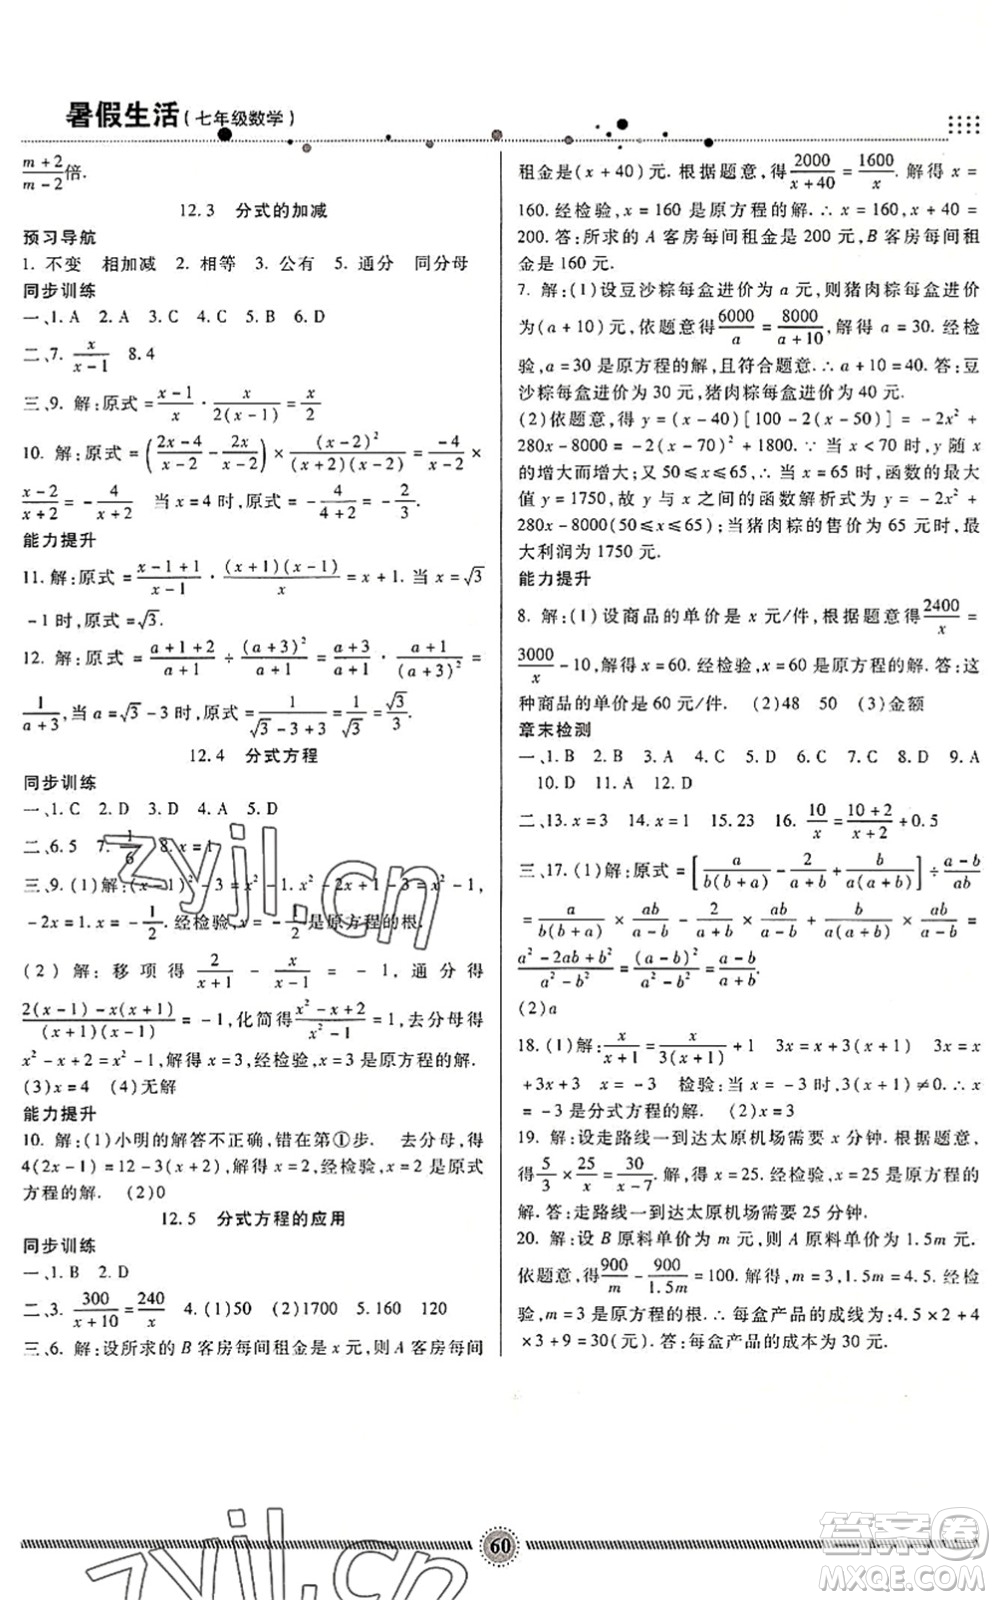 暑假生活(七年级数学)
(m+2)/(m-2)倍.
12.3 分式的加减
预习导航
1. 不变 相加减 2. 相等 3. 公有 5. 通分 同分母
同步训练
一、1. A 2. A 3. C 4. C 5. B 6. D
二、7. x/(x-1) 8. 4
三、9. 解:原式=(x-1)/x·x/(2(x-1))=x/2
10. 解:原式=((2x-4)/(x-2)-2x/(x-2))×(x-2)²/((x+2)(x-2))=-4/(x-2)·
(x-2)/(x+2)=-4/(x+2) 当x=4时,原式=-4/(4+2)=-2/3.
能力提升
11. 解:原式=(x-1+1)/(x-1)·(x+1)(x-1)/x=x+1. 当x=√3
-1时,原式=√3.
12. 解:原式=(a+1+2)/(a+1)÷(a+3)²/(a+1)=(a+3)/(a+1)·(a+1)/(a+3)²=
1/(a+3), 当a=√3-3时,原式=1/(√3-3+3)=1/√3=√3/3.
12.4 分式方程
同步训练
一、1. C 2. D 3. D 4. A 5. D
二、6. 5 7. 1/6 8. x=1
三、9. (1)解:(x-1)²-3=x²-1. x²-2x+1-3=x²-1,
-2x=1,x=-1/2. 经检验,x=-1/2是原方程的根.
(2)解:移项得2/(x+1)-x/(x-1)=-1,通分得
(2(x-1)-x(x+1))/((x+1)(x-1))=-1,化简得(x²-x+2)/(x²-1)=1,去分母得
x²-x+2=x²-1,解得x=3,经检验,x=3是原方程的解.
(3)x=4 (4)无解
能力提升
10. 解:(1)小明的解答不正确,错在第①步. 去分母,得
4(2x-1)=12-3(x+2),解得x=1,经检验,x=1是原式
方程的解. (2)0
12.5 分式方程的应用
同步训练
一、1. B 2. D
二、3. 300/(x+10)=240/x 4. (1)50 (2)1700 5. 160 120
三、6. 解:设所求的B客房每间租金是x元,则A客房每间
租金是(x+40)元. 根据题意,得2000/(x+40)=1600/x. 解得x=
160. 经检验,x=160是原方程的解. ∴x=160,x+40=
200. 答:所求的A客房每间租金是200元,B客房每间租
金是160元.
7. 解:(1)设豆沙粽每盒进价为a元,则猪肉粽每盒进价
为(a+10)元,依题意得6000/a=8000/(a+10),解得a=30. 经检
验,a=30是原方程的解,且符合题意. ∴a+10=40. 答:豆
沙粽每盒进价为30元,猪肉粽每盒进价为40元.
(2)依题意,得y=(x-40)[100-2(x-50)]=-2x²+
280x-8000=-2(x-70)²+1800. ∵当x<70时,y随x
的增大而增大;又50≤x≤65,∴当x=65时,函数的最大
值y=1750,故y与x之间的函数解析式为y=-2x²+
280x-8000(50≤x≤65);当猪肉粽的售价为65元时,最
大利润为1750元.
能力提升
8. 解:(1)设商品的单价是x元/件,根据题意得2400/x=
3000/x-10,解得x=60. 经检验,x=60是原方程的解. 答:这
种商品的单价是60元/件. (2)48 50 (3)金额
章末检测
一、1. B 2. B 3. D 4. C 5. C 6. A 7. B 8. D 9. A
10. D 11. A 12. D
二、13. x=3 14. x=1 15. 23 16. 10/x=(10+2)/(x+2)+0.5
三、17. (1)解:原式=[a/(b(b+a))-2/(a+b)+b/(a(a+b))]÷(a-b)/ab
=a/(b(b+a))×ab/(a-b)-2/(a+b)×ab/(a-b)+b/(a(a+b))×ab/(a-b)=
(a²-2ab+b²)/(a²-b²)=(a-b)²/(a²-b²)=(a-b)/(a+b).
(2)a
18. (1)解:x/(x+1)=x/(3(x+1))+1 3x=x+3(x+1) 3x=x
+3x+3 x=-3 检验:当x=-3时,3(x+1)≠0. ∴x
=-3是分式方程的解. (2)x=3
19. 解:设走路线一到达太原机场需要x分钟. 根据题意,
得5/3×25/x=30/(x-7). 解,得x=25. 经检验,x=25是原方程的
解. 答:走路线一到达太原机场需要25分钟.
20. 解:设B原料单价为m元,则A原料单价为1.5m元.
依题意,得900/m-900/1.5m=100. 解得,m=3,1.5m=4.5. 经检
验,m=3是原方程的根. ∴每盒产品的成线为:4.5×2+4
×3+9=30(元). 答:每盒产品的成本为30元.
60
zyjl.cn
zyjl.cn
答案圈
MXQE.COM